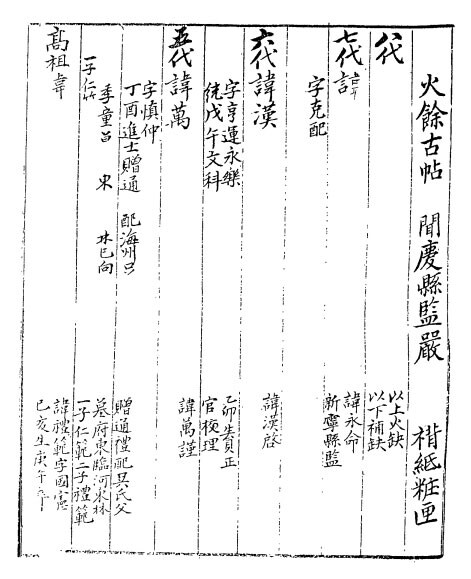 火餘古帖 聞慶縣監嚴 楷紙粧匣
八代 以上火缺
以下補缺
七代諱 諱永命
字克配 新寧縣監
六代諱漢 諱漢啓
字亨運永樂 乙卯生員正
統戊午文科 官校理
五代諱萬 諱萬謹
字慎仲
丁酉進士贈通 配海州吳 贈通禮配吳氏父
季童 墓府東臨河東林
一子仁 林巳向 一子仁範二子禮範
高祖 諱禮範字國賓
己亥生庚午